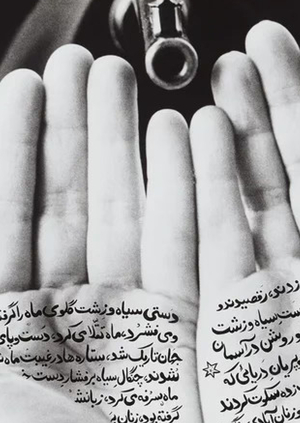 دستی سیاه و زشت گلوی ماه را گرفته
می فشرد، ماه تقلا می کرد، دست و پای
جهان تاریک شد، ستاره ها در غیبت ماه
نشوند، چنگال سیاه بر فشار دست
ماه سرفه می کرد، زبانش
گرفته بود، زنان
زدند، رقصیدند و
دست سیاه و زشت
و روشن در آسمان
پریان دریائی که
زده سکوت کردند
و زنان آبادی